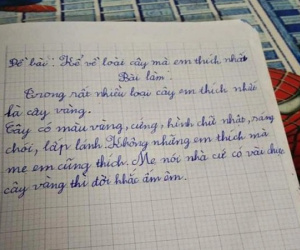 Đề bài: Kể về loài cây mà em thích nhất
Bài làm:
Trong rất nhiều loại cây em thích nhất
là cây vàng.
Cây có màu vàng, cứng, hình chữ nhật, sáng
chói, lấp lánh. Không những em thích mà
mẹ em cũng thích. Mẹ nói nhà cứ có vài chục
cây vàng thì đời khắc ấm êm.